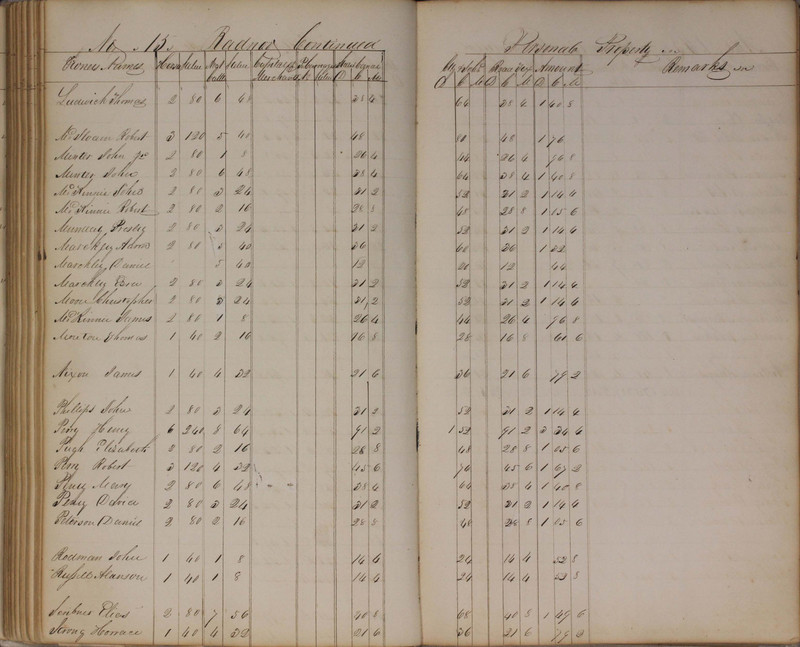 No 15. Radnor Continued Personal Property
Owners Names Horses Value Neat Cattle Value Amount Remarks
Ludwick Thomas 2 80 6 48 38 4 64 38 4 1 40 8
Robert 3 120 5 40 48 80 48 1 76
Minter John Jr 2 80 1 8 26 4 44 26 4 96 8
Minter John 2 80 6 48 38 4 64 38 4 1 40 8
McKinnie John 2 80 3 24 31 2 52 31 2 1 14 4
McKinnie Robert 2 80 2 16 28 8 48 28 8 1 05 6
Munday Presley 2 80 3 24 31 2 52 31 2 1 14 4
2 80 5 40 36 60 36 1 32
Daniel 5 40 12 20 12 44
2 80 3 24 31 2 52 31 2 1 14 4
Moore Christopher 2 80 3 24 31 2 52 31 2 1 14 4
McKinnie James 2 80 1 8 26 4 44 26 4 96 8
Thomas 1 40 2 16 16 8 28 16 8 61 6
Nixon James 1 40 4 32 21 6 36 21 6 79 2
Phillips John 2 80 3 24 31 2 52 31 2 1 14 4
Perry Henry 6 240 8 64 91 2 1 52 91 2 3 34 4
Pugh Elizabeth 2 80 2 16 28 8 48 28 8 1 05 6
Perry Robert 3 120 4 32 45 6 76 45 6 1 67 2
Mary 2 80 6 48 38 4 64 38 4 1 40 8
Perry David 2 80 3 24 31 2 52 31 2 1 14 4
Peterson Daniel 2 80 2 16 28 8 48 28 8 1 05 6
Rodman John 1 40 1 8 14 4 24 14 4 52 8
Alanson 1 40 1 8 14 4 24 14 4 52 8
Elias 2 80 7 56 40 8 68 40 8 1 49 6
Strong Horrace 1 40 4 32 21 6 36 21 6 79 2